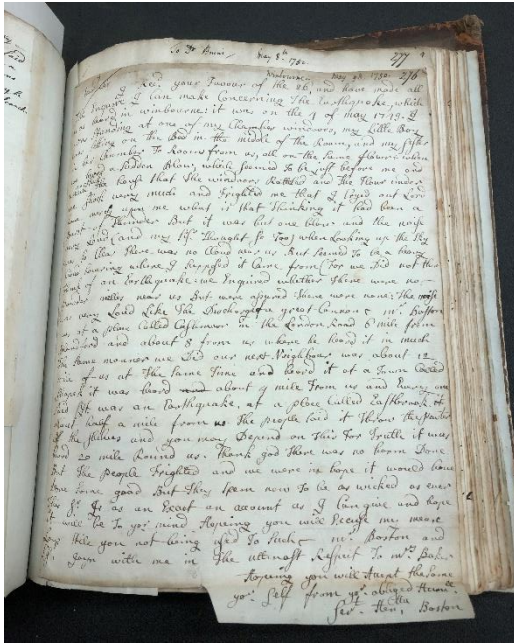 To Dr Burns May 8th 1750
277
Winbourne May 9th 1750 276
I Recd. your Favour of the 26, and have made all
Enquire I can make Concerning The Earthquake, which
was heard in winbourne: it was on the 4 of may 1749. I
was standing at one of my Chamber windows, my Little Boy
on the Bed in the middle of the Room, and my Sister
a Chamber Two Rooms from us, all on the same flower, when
a Sodden Blow, which seemed To be just before me and
the house that The windows Rattled and The flour under
very much and Frighted me that I Cryed out Lord
upon me what is that Thinking it had been a
of Thunder But it was but one blow and the noise
Loud (and my Sisr. Thought so Too) when Looking up the Sky
There was no Cloud near us But seemed To be a
where I suppos'd it Came from for we Did not think
of an Earthquake: we Enquired whether There were no
near us But were assured There were none: The noise
was very Loud Like The Discharge of a great Cannon mr. Boston
at a place Called Cashmoor in the London Road 6 mile from
and about 8 from us where he heard it in much
The Same manner we Did our next Neighbour was about 12
mile of us at The same Time and heard it at a Town Called
it was heard about 9 mile From us and Every one
said It was an Earthquake, at a place Called Eastbrook at
about half a mile from us The People said it Threw the pewter
of the shelves and you may Depend on This For Truth it was
heard 20 mile Round us. Thank god There was no harm Done
But The People Frighted and we were in hope it would have
Done some good But They Seem now To be as wicked as ever
This Sr. Is as an Exact an account as I Can give and hope
it will be To your mind Hopeing you will Excuse my
you not being used To Such: mr. Boston and
Joyn with me in The uttmost Respect To mrs Baker
Hopeing you will Accept the same
your Self from yr. obliged Humle.
Servt. Hentta. Boston